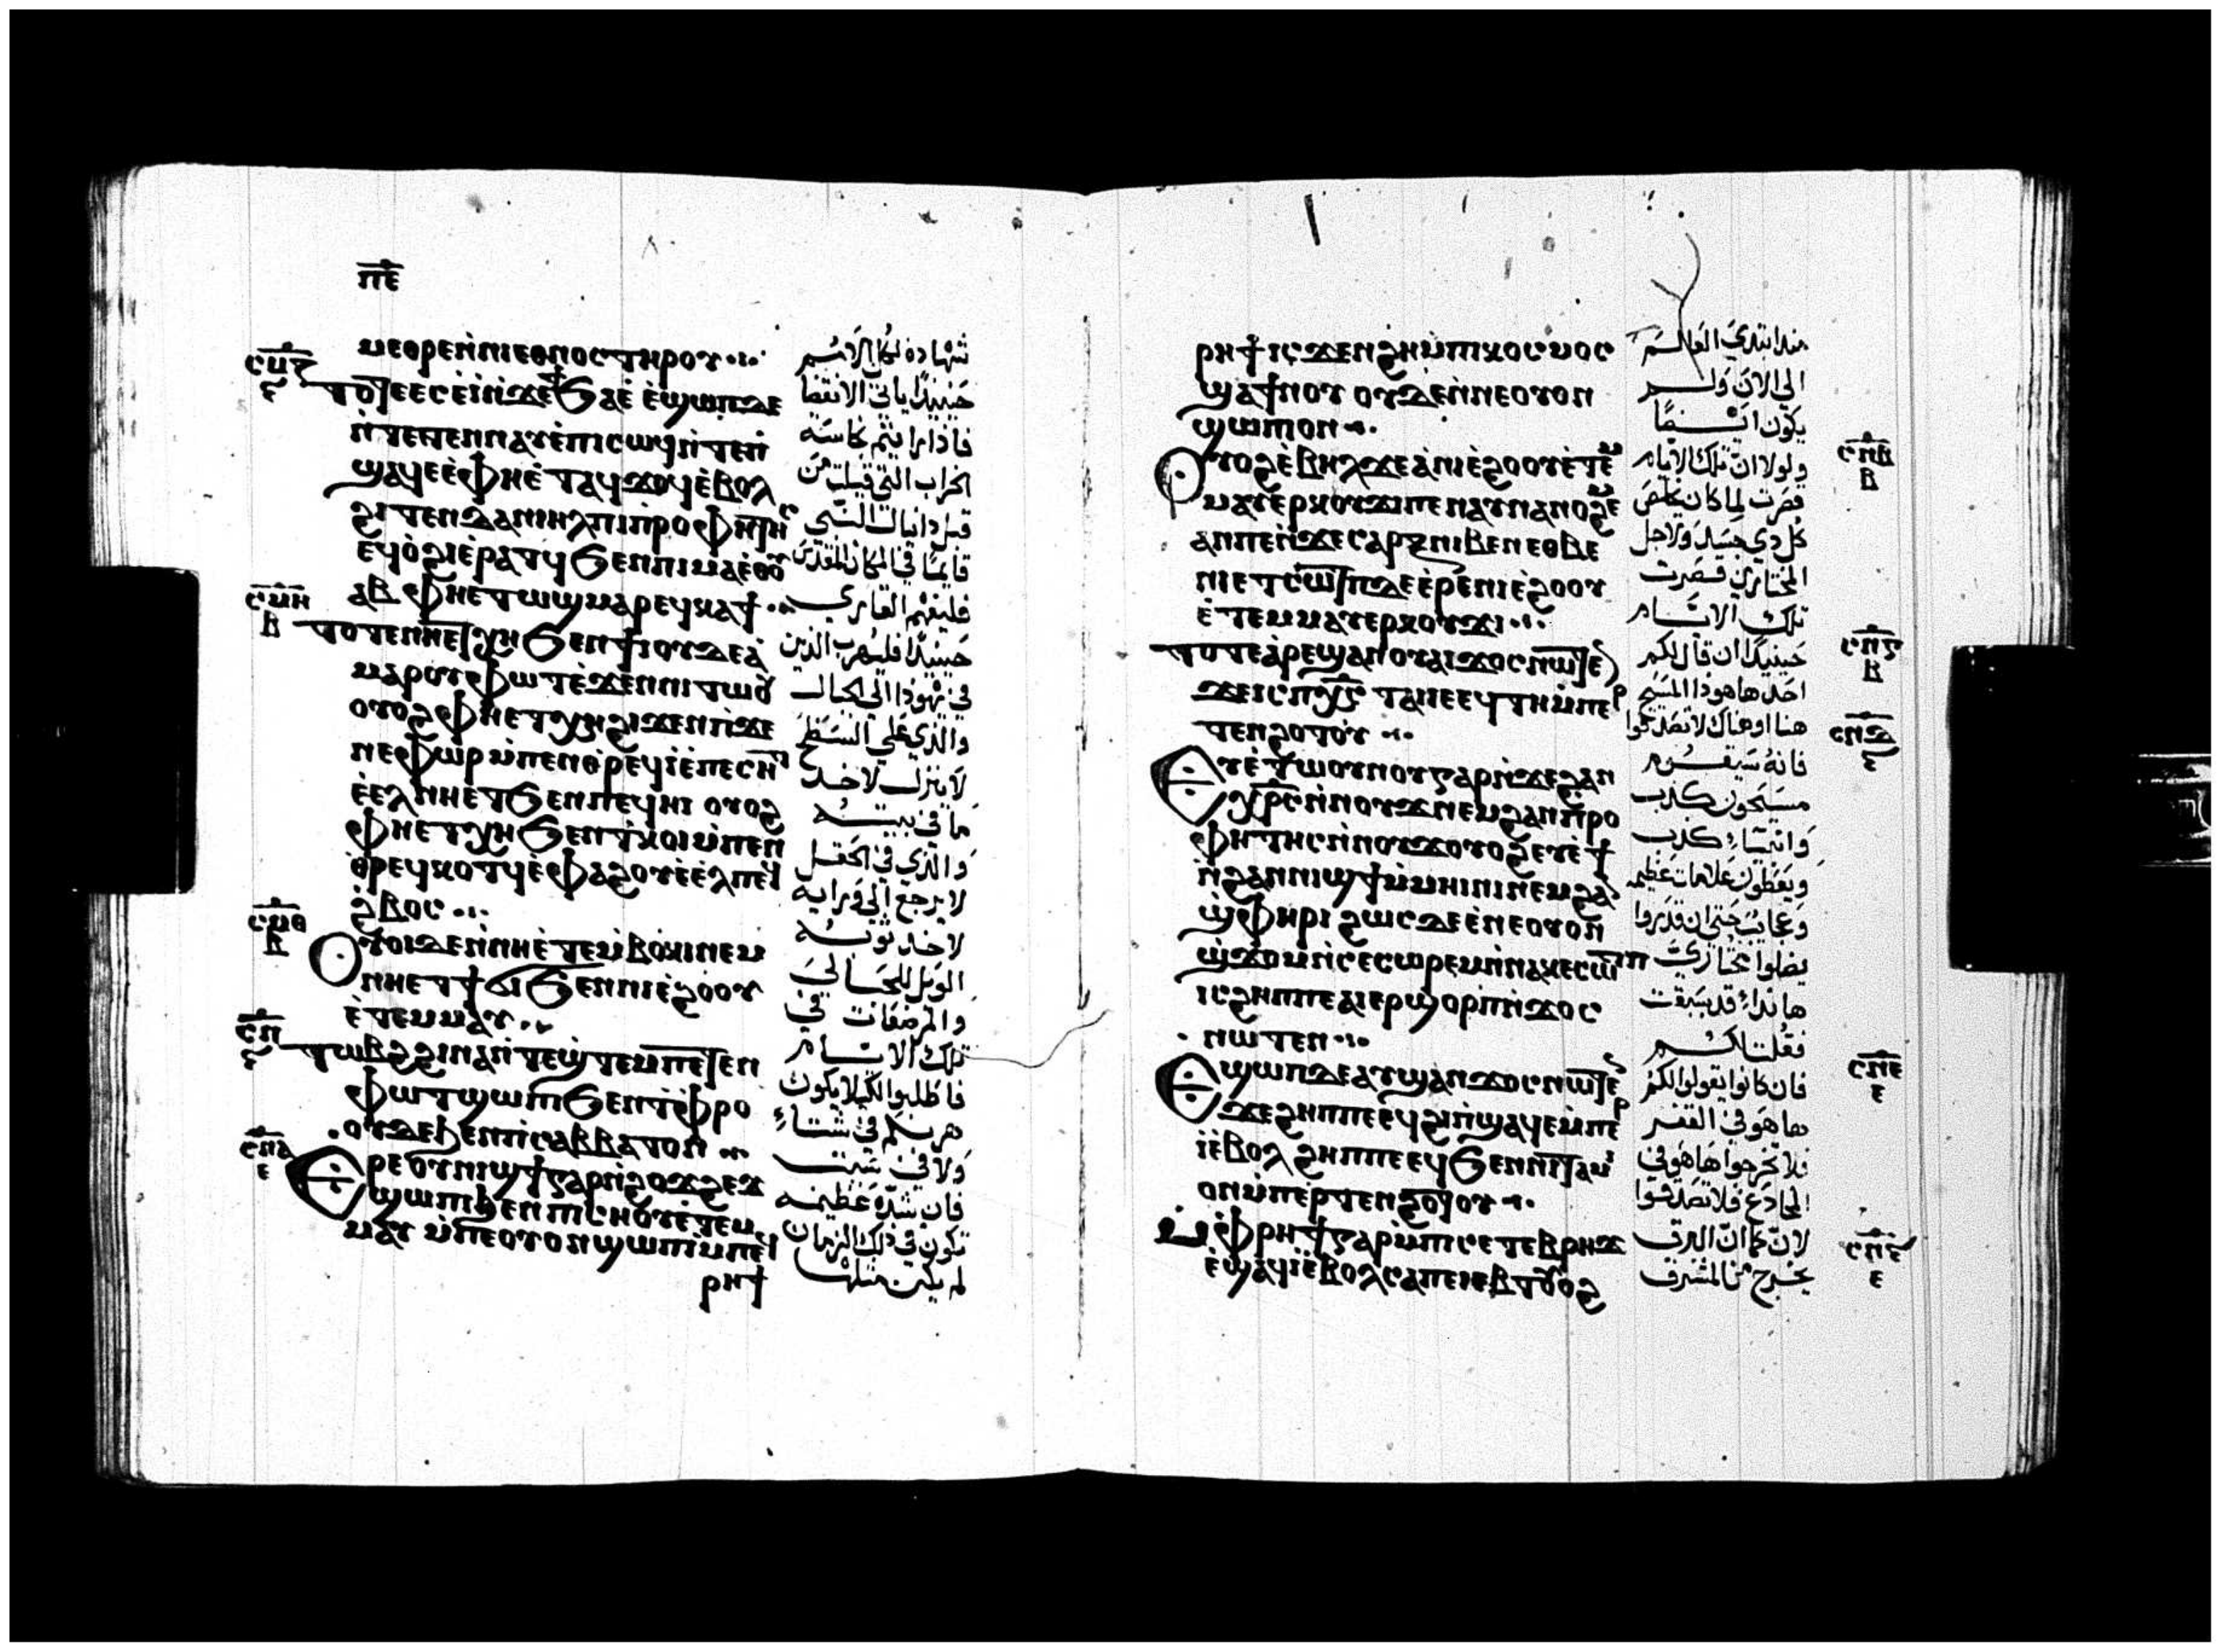 ⲡⲉ
ⲙⲉⲑⲣⲉⲛ̀ⲛⲓⲉⲑⲛⲟⲥⲧⲏⲣⲟⲩ
ⲥⲙⲍ
ⲋ
ⲧⲟⲧⲉⲉⲥⲉ̀ⲓ̀ⲛ̀ϫⲉϯϧⲁⲉ̀ ⲉ̀ϣⲱⲡⲇⲉ
ⲛ̀ⲧⲉⲧⲉⲛⲛⲁⲩⲉ̀ⲡⲓⲥⲱϥⲛ̀ⲧⲉⲡ
ϣⲁϥⲉⲉ̀ⲫⲏⲉ̀ⲧⲁϥϫⲟϥⲉ̀ⲃⲟⲗ
ϩⲓⲧⲉⲛⲇⲁⲛⲓⲏⲗⲡⲓⲡ̀ⲣⲟⲫⲏⲧⲏⲥ
ⲉϥⲟ̀ϩⲓⲉ̀ⲣⲁⲧϥϧⲉⲛⲡⲓⲙⲁⲉ̀ⲑⲟⲩ
ⲁⲃ ⲫⲏⲉⲧⲱϣⲙⲁⲣⲉϥⲕⲁϯ
ⲥⲙⲏ
ⲃ
ⲧⲟⲧⲉⲛⲏⲉⲧⲭⲏϧⲉⲛϯⲓⲟⲩⲇⲉⲁ̀
ⲙⲁⲣⲟⲩⲫⲱⲧⲉ̀ϫⲉⲛⲛⲓⲧⲱⲟⲩ
ⲟⲩⲟϩⲫⲏⲉⲧⲭⲏϩⲓϫⲉⲛⲡⲓϫⲉ
ⲛⲉⲫⲱⲣⲙ̀ⲡⲉⲛⲑ̀ⲣⲉϥⲓ̀ⲉ̀ⲡⲉⲥⲏⲧ
ⲉ̀ⲉⲗⲛⲏⲉⲧϧⲉⲛⲡⲉϥⲏⲓ ⲟⲩⲟϩ
ⲫⲏⲉⲧⲭⲏϧⲉⲛⲧ̀ⲕⲟⲓⲙ̀ⲡⲉⲛ
ⲑ̀ⲣⲉϥⲕⲟⲧϥⲉ̀ⲫⲁϩⲟⲩⲉ̀ⲉ̀ⲗⲡⲉϥ
ϩ̀ⲃⲟⲥ
ⲥⲙⲑ
ⲃ
ⲟⲩⲟⲓⲇⲉⲛ̀ⲛⲏⲉ̀ⲧⲉⲙ̀ⲃⲟⲕⲓⲛⲉⲙ
ⲛⲏⲉⲧϯϭⲓϧⲉⲛⲛⲓⲉ̀ϩⲟⲟⲩ
ⲉ̀ⲧⲉⲙⲙⲁⲩ
ⲥⲛ
ⲋ
ⲧⲱⲃϩϩⲓⲛⲁⲛ̀ⲧⲉϣ̀ⲧⲉⲙⲡⲉⲧⲉⲛ
ⲫⲱⲧϣⲱⲡⲓϧⲉⲛⲧ̀ⲫⲣⲟ
ⲟⲩⲇⲉϧⲉⲛⲡⲓⲥⲁⲃⲃⲁⲧⲟⲛ
ⲥⲛⲁ
ⲉ
ⲉⲣⲉⲟⲩⲛⲓϣϯⲅⲁⲣⲛ̀ϩⲟϫϩⲉϫ
ϣⲱⲡⲓϧⲉⲛⲡⲓⲥⲏⲟⲩⲉ̀ⲧⲉⲙ
ⲙⲁⲩ ⲙ̀ⲡⲉⲟⲩⲟⲛϣⲱⲡⲓⲙ̀ⲡⲉϥ
ⲣⲏϯ
شهادة لكل الامم
حينيذ ياتي الانقضا
فاذا رايتم نجاسة
الخراب التي قيلت من
قبل دانيال النبي
قايما في المكان المقدس
فليفهم القاري
حينيذ فليهرب الذين
في يهوذا الي الجبال
والذي علي السطح
لا ينزل لاخذ
ما في بيته
والذي في الحقل
لا يرجع الي ورايه
لاخذ ثوبه
الويل للحبالي
والمرضعات في
تلك الايام
فاطلبوا لكيلا يكون
هربكم في شتاء
ولا في سبت
فان شدة عظيمة
تكون في ذلك الزمان
لم يكن مثلها
ⲣⲏϯ ⲓⲥϫⲉⲛϩⲏⲙ̀ⲡⲓⲕⲟⲥⲙⲟⲥ
ϣⲁϯⲛⲟⲩ ⲟⲩⲇⲉⲛ̀ⲛⲉⲟⲩⲟⲛ
ϣⲱⲡⲓⲟⲛ
ⲥⲛⲃ
ⲃ
ⲟⲩⲟϩⲉ̀ⲃⲏⲗϫⲉⲁ̀ⲛⲓⲉ̀ϩⲟⲟⲩⲉ̀ⲧⲉⲙ
ⲙⲁⲩⲉ̀ⲣⲕⲟⲩϫⲓⲡⲉⲛⲁⲩⲛⲁⲛⲟϩⲉⲙ
ⲁⲛⲡⲉⲛ̀ϫⲉⲥⲁⲣⲝⲛⲓⲃⲉⲛ ⲉⲑⲃⲉ
ⲛⲓⲉⲧⲥⲱⲧⲡⲇⲉⲉ̀ⲣⲉⲛⲓⲉ̀ϩⲟⲟⲩ
ⲉ̀ⲧⲉⲙⲙⲁⲩⲉⲣⲕⲟⲩϫⲓ
ⲥⲛⲅ
ⲃ
ⲧⲟⲧⲉⲁ̀ⲣⲉϣⲁⲛⲟⲩⲁⲓϫⲟⲥⲛⲱⲧⲉⲛ
ϫⲉⲓⲥⲡⲭⲥ ⲧⲁⲓⲉⲉϥⲧⲏⲙ̀ⲡⲉⲣ
ⲧⲉⲛϩⲟⲩⲧⲟⲩ
ⲥⲛⲇ
ⲋ
ⲉⲩⲉ̀ⲧⲱⲟⲩⲛⲟⲩⲅⲁⲣⲛ̀ϫⲉϩⲁⲛ
ⲭⲣⲥⲛ̀ⲛⲟⲩϫⲛⲉⲙϩⲁⲛⲡ̀ⲣⲟ
ⲫⲏⲧⲏⲥⲛ̀ⲛⲟⲩϫⲟⲩⲟϩⲉⲩⲉ̀ϯ
ⲛ̀ϩⲁⲛⲛⲓϣϯⲙ̀ⲙⲏⲓⲛⲓⲛⲉⲙϩⲁⲛ
ϣ̀ⲫⲏⲣⲓ ϩⲱⲥⲇⲉⲉ̀ⲛⲉⲟⲩⲟⲛ
ϣ̀ϫⲟⲙⲛ̀ⲥⲉⲥⲱⲣⲉⲙⲛ̀ⲛⲁⲕⲉⲥⲱⲧⲡ
ⲓⲥϩⲏⲡⲡⲉⲁⲓⲉⲣϣⲟⲣⲡⲛ̀ϫⲟⲥ
ⲛⲱⲧⲉⲛ
ⲥⲛⲉ
ⲉ
ⲉϣⲱⲡⲇⲉⲁⲩϣⲁⲛϫⲟⲥⲛⲱⲧⲉⲛ
ϫⲉϩⲏⲡⲡⲉⲉϥϩⲓⲡ̀ϣⲁϥⲉⲙ̀ⲡⲉⲣ
ⲓ̀ⲉ̀ⲃⲟⲗ ϩⲏⲡⲡⲉⲉϥϧⲉⲛⲛⲓⲧⲁⲙⲓ
ⲟⲛⲙ̀ⲡⲉⲣⲧⲉⲛϩⲟⲩⲧⲟⲩ
ⲥⲛⲋ
ⲉ
ⲙ̀ⲫⲣⲏϯⲅⲁⲣⲙ̀ⲡⲓⲥⲉⲧⲉⲃⲣⲏϫ
ⲉ̀ϣⲁϥⲓ̀ⲉ̀ⲃⲟⲗⲥⲁⲡⲉⲓⲉⲃⲧⲟⲩⲟϩ
منذ ابتدي العالم
الي الان ولم
يكون ايضا
ولولا ان تلك الايام
قصرت لما كان يخلص
كل ذي جسد ولاجل
المختارين قصرت
تلك الايام
حينيذ ان قال لكم
احد ها هوذا المسيح
هنا او هناك لا تصدقوا
فانه سيقوم
مسيحون كذب
وانبياء كذب
ويعطون علامات عظيمة
وعجايب حتي ان قدروا
يضلوا مختاري
هانذا قد سبقت
فقلت لكم
فان كانوا يقولوا لكم
ها هو في القفر
فلا تخرجوا ها هو في
المخادع فلا تصدقوا
لان كما ان البرق
يخرج من المشرق